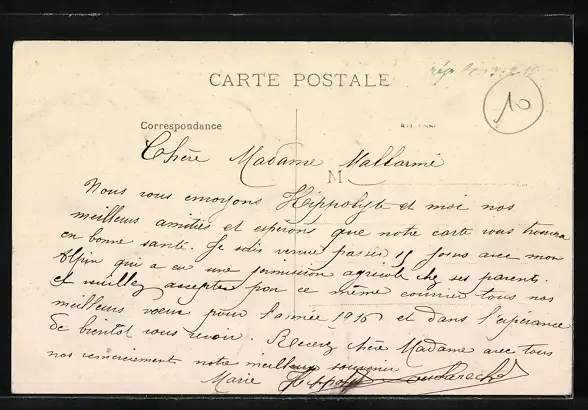 CARTE POSTALE
10
Correspondance
Chère Madame Mallarmé
M
Nous vous envoyons Hippolyte et moi nos
meilleurs amitiés et espérons que notre carte vous trouvera
en bonne santé. Je suis venue passer 15 jours avec mon
Alpin qui a eu une permission agricole chez ses parents.
et veuillez accepter par ce même courrier tous nos
meilleurs voeux pour l'année 1916 et dans l'espérance
de bientôt vous revoir. Recevez chère Madame avec tous
nos remerciement notre meilleur souvenir
Marie Hippolyte